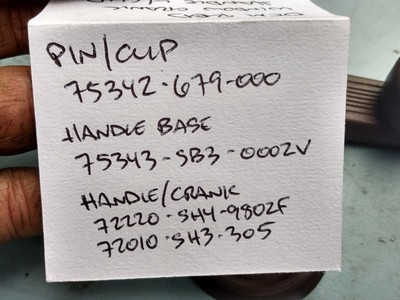 PIN/CLIP
75342-679-000
HANDLE BASE
75343-SB3-0002V
HANDLE/CRANK
72220-SH4-9802F
72010-SH3-305